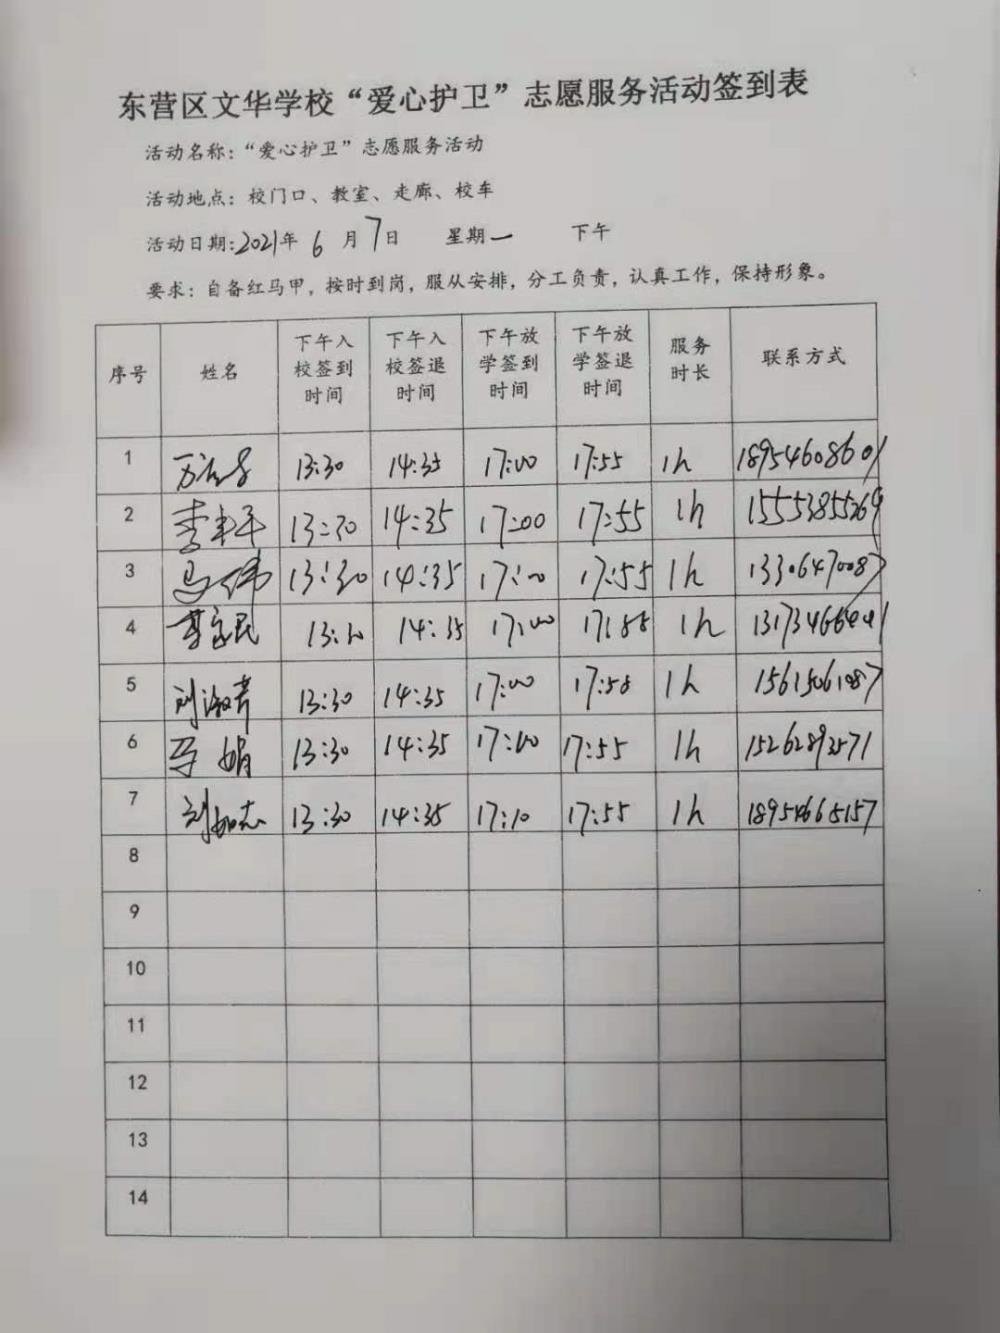 东营区文华学校“爱心护卫”志愿服务活动签到表
活动名称：“爱心护卫”志愿服务活动
活动地点：校门口、教室、走廊、校车
活动日期：2021年 6 月 7日 星期一 下午
要求：自备红马甲，按时到岗，服从安排，分工负责，认真工作，保持形象。
序号 姓名 下午入校签到时间 下午入校签退时间 下午放学签到时间 下午放学签退时间 服务时长 联系方式
1 13:30 14:35 17:00 17:55 1h 18954608601
2 13:30 14:35 17:00 17:55 1h 15553855269
3 马伟 13:30 14:35 17:00 17:55 1h 13306470087
4 13:30 14:35 17:00 17:55 1h
5 刘淑菁 13:30 14:35 17:00 17:55 1h 15615061987
6 马娟 13:30 14:35 17:00 17:55 1h 15262892571
7 刘如志 13:30 14:35 17:10 17:55 1h 18954665157
8
9
10
11
12
13
14